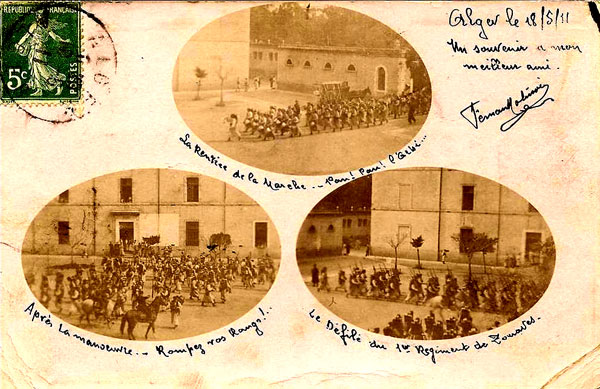 REPUBLIQUE FRANÇAISE
5c
POSTES
Alger le 18/5/11
Un souvenir a mon
meilleur ami.
La Rentrée de la Marche... Pan! Pan! l'Arbi...
Après la manoeuvre... Rompez vos Rangs!..
Le Défilé du 1er Regiment de Zouaves.